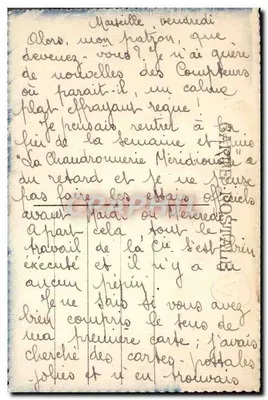 Marseille vendredi
Alors, mon patron, que
devenez-vous? Je n'ai guère
de nouvelles des Compteurs
où parait-il, un calme
plat effrayant règne!
Je pensais rentrer à la
fin de la semaine et
"La Chaudronnerie Méridionale" a
du retard et je ne pense
pas faire les essais officiels
avant Mardi ou Mercredi
A part cela tout le
travail de la Cie s'est bien
exécuté et il n'y a eu
aucun pépin.
Je ne sais si vous avez
bien compris le sens de
ma première carte; j'avais
cherché des cartes-postales
jolies et n'en trouvais
CARTE POSTALE